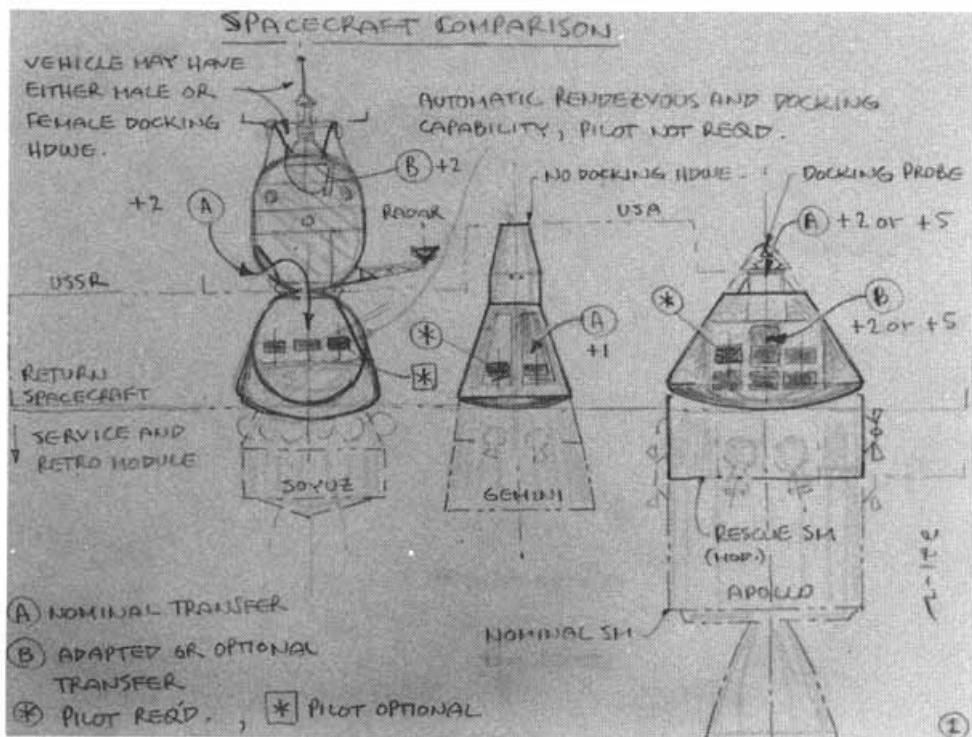 SPACECRAFT COMPARISON
VEHICLE MAY HAVE
EITHER MALE OR
FEMALE DOCKING
HDWE.
AUTOMATIC RENDEZVOUS AND DOCKING
CAPABILITY, PILOT NOT REQ'D.
B +2
+2 A
RADAR
NO DOCKING HDWE.
DOCKING PROBE
USA
A +2 or +5
USSR
*
A
+1
*
*
B
+2 or +5
RETURN
SPACECRAFT
SERVICE AND
RETRO MODULE
SOYUZ
GEMINI
RESCUE SM
(MOD.)
APOLLO
NOMINAL SM
A NOMINAL TRANSFER
B ADAPTED OR OPTIONAL
TRANSFER
* PILOT REQ'D. , * PILOT OPTIONAL
1